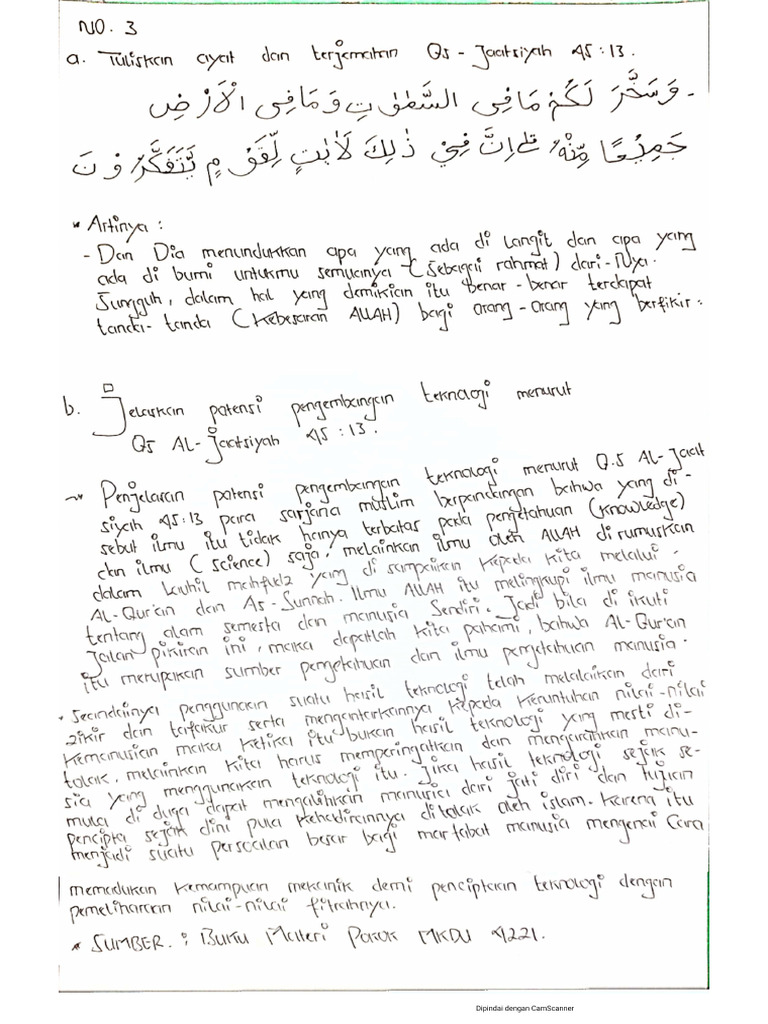 NO. 3
a. Tuliskan ayat dan terjemahan Qs - Jaatsiyah 45 : 13.
- وَسَخَّرَ لَكُمْ مَا فِى السَّمٰوٰتِ وَمَا فِى الْاَرْضِ
جَمِيْعًا مِّنْهُ ۗ اِنَّ فِيْ ذٰلِكَ لَاٰيٰتٍ لِّقَوْمٍ يَّتَفَكَّرُوْنَ
* Artinya :
- Dan Dia menundukkan apa yang ada di langit dan apa yang
ada di bumi untukmu semuanya (sebagai rahmat) dari-Nya.
Sungguh, dalam hal yang demikian itu benar-benar terdapat
tanda-tanda (Kebesaran ALLAH) bagi orang-orang yang berfikir.
b. Jelaskan potensi pengembangan teknologi menurut
Qs AL-Jaatsiyah 45 : 13.
~ Penjelasan potensi pengembangan teknologi menurut Q.S AL-Jaat
siyah 45:13 para sarjana muslim berpandangan bahwa yang di-
sebut ilmu itu tidak hanya terbatas pada pengetahuan (knowledge)
dan ilmu (science) saja, melainkan ilmu oleh ALLAH di rumuskan
dalam lauhil mahfudz yang di sampaikan kepada kita melalui
AL-Qur'an dan As-Sunnah. Ilmu ALLAH itu melingkupi ilmu manusia
tentang alam semesta dan manusia sendiri. Jadi bila di ikuti
jalan pikiran ini, maka dapatlah kita pahami, bahwa AL-Qur'an
itu merupakan sumber pengetahuan dan ilmu pengetahuan manusia.
• Seandainya penggunaan suatu hasil teknologi telah melalaikan dari
zikir dan tafakur serta mengantarkannya kepada keruntuhan nilai-nilai
kemanusian maka ketika itu bukan hasil teknologi yang mesti di-
tolak, melainkan kita harus memperingatkan dan mengarahkan manu-
sia yang menggunakan teknologi itu. Jika hasil teknologi sejak se-
mula di duga dapat mengalihkan manusia dari jati diri dan tujuan
pencipta sejak dini pula kehadirannya ditolak oleh islam. Karena itu
menjadi suatu persoalan besar bagi martabat manusia mengenai cara
memadukan kemampuan mekanik demi penciptaan teknologi dengan
pemeliharaan nilai-nilai fitrahnya.
* SUMBER. : BUKU Materi Pokok MKDU 4221.
Dipindai dengan CamScanner